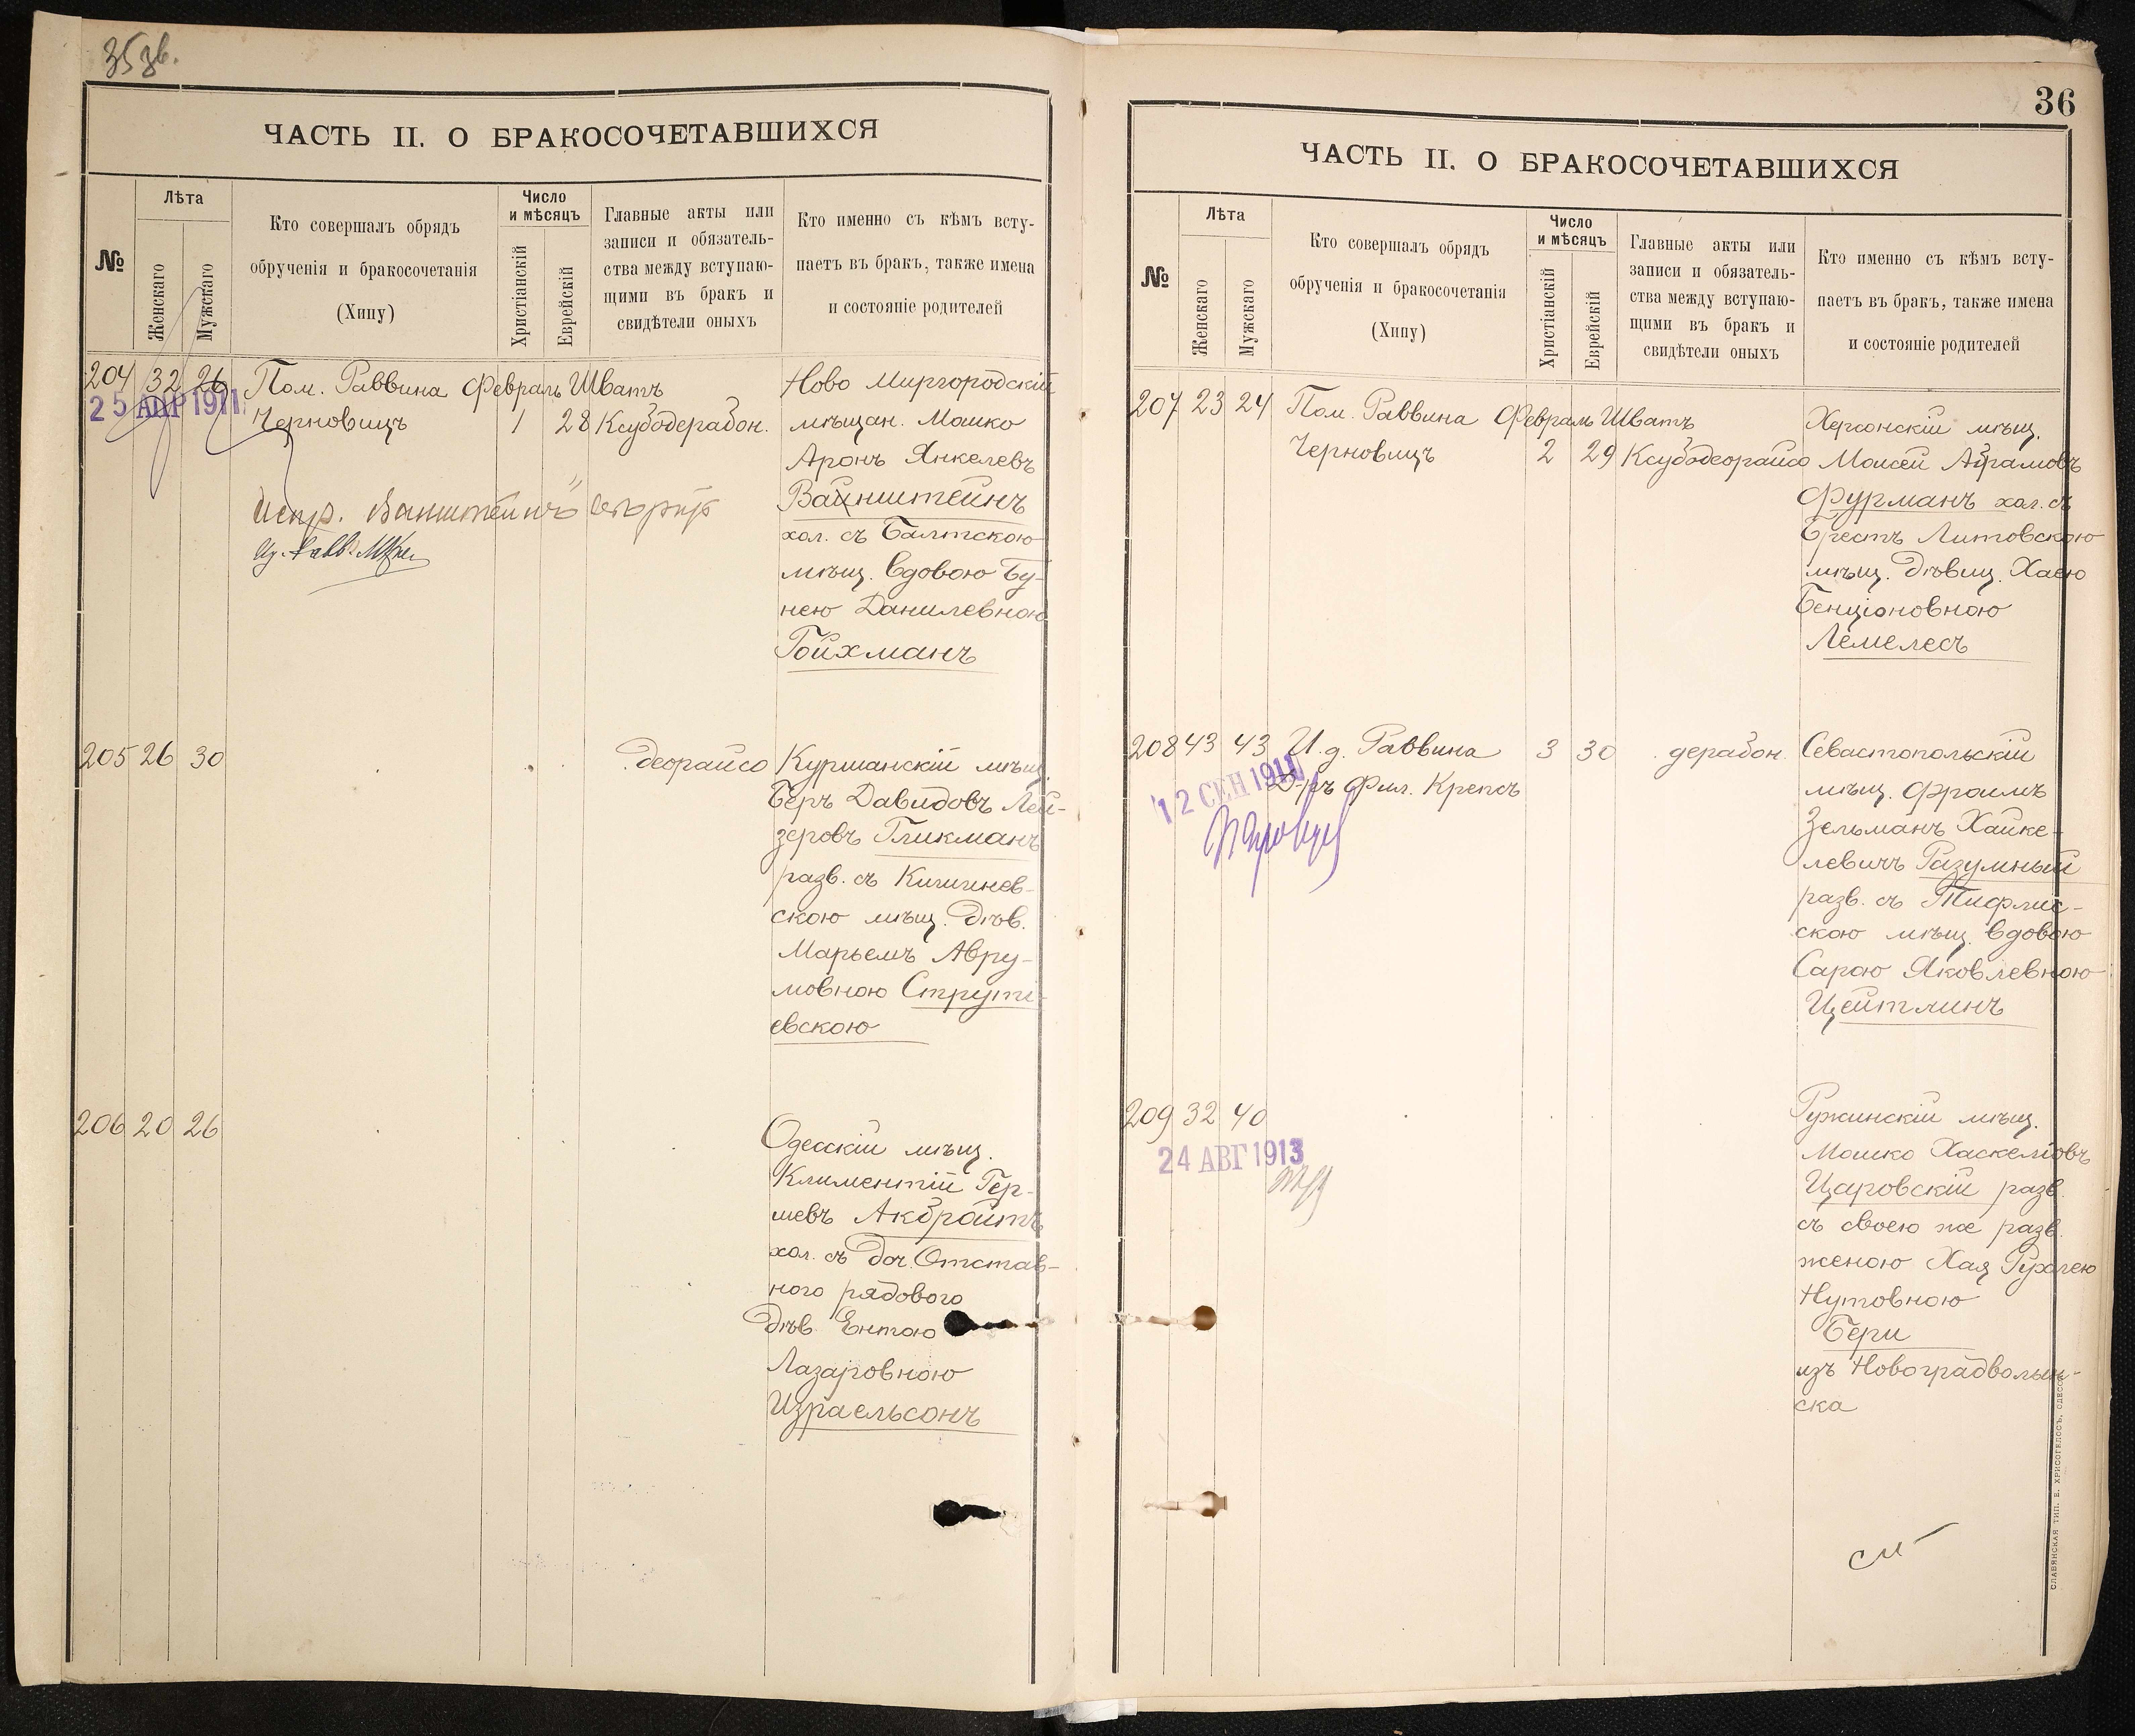 ЧАСТЬ II. О БРАКОСОЧЕТАВШИХСЯ
№
Лѣта
Женскаго
Мужскаго
Кто совершалъ обрядъ
обрученія и бракосочетанія
(Хипу)
Число
и мѣсяцъ
Христіанскій
Еврейскій
Главные акты или
записи и обязатель-
ства между вступаю-
щими въ бракъ и
свидѣтели оныхъ
Кто именно съ кѣмъ всту-
паетъ въ бракъ, также имена
и состояніе родителей
204 32 26
25 АПР 1911
Пом. Раввина Февраль Шватъ
Черновицъ 1 28 Ксубодерабон.
Ново Миргородскій
мѣщан. Мошко
Аронъ Янкелевъ
Вайнштейнъ
хол. съ Балтскою
мѣщ. вдовою Бу-
нею Данилевною
Гойхманъ
205 26 30
деорайсо
Куршанскій мѣщ.
Беръ Давидовъ Лей-
зеровъ Гликманъ
разв. съ Кишинев-
скою мѣщ. дѣв.
Марьемъ Авру-
мовною Струти-
евскою
206 20 26
Одесскій мѣщ.
Климентій Гер-
шевъ Акбройтъ
хол. съ доч. Отстав-
ного рядового
дѣв. Ентою
Лазаровною
Израельсонъ
36
ЧАСТЬ II. О БРАКОСОЧЕТАВШИХСЯ
№
Лѣта
Женскаго
Мужскаго
Кто совершалъ обрядъ
обрученія и бракосочетанія
(Хипу)
Число
и мѣсяцъ
Христіанскій
Еврейскій
Главные акты или
записи и обязатель-
ства между вступаю-
щими въ бракъ и
свидѣтели оныхъ
Кто именно съ кѣмъ всту-
паетъ въ бракъ, также имена
и состояніе родителей
207 23 24
Пом. Раввина Февраль Шватъ
Черновицъ 2 29 Ксубодеорайсо
Херсонскій мѣщ.
Моисей Абрамовъ
Фурманъ хол. съ
Брестъ Литовскою
мѣщ. дѣвиц. Хаею
Бенціоновною
Лемелесъ
208 43 43
И. д. Раввина 3 30 дерабон.
Д-ръ Фил. Крепсъ
12 СЕН
Севастопольскій
мѣщ. Фроимъ
Зельманъ Хайке-
левичъ Разумный
разв. съ Тифлис-
скою мѣщ. вдовою
Сарою Яковлевною
Цейтлинъ
209 32 40
24 АВГ 1913
Ружинскій мѣщ.
Мошко Хаскелiовъ
Царовскій разв.
съ своею же разв.
женою Хая Рухлею
Нутовною
Бери
изъ Новоградволын-
ска
СЛАВЯНСКАЯ ТИП. Е. ХРИСОГЕЛОСЪ, ОДЕССА.